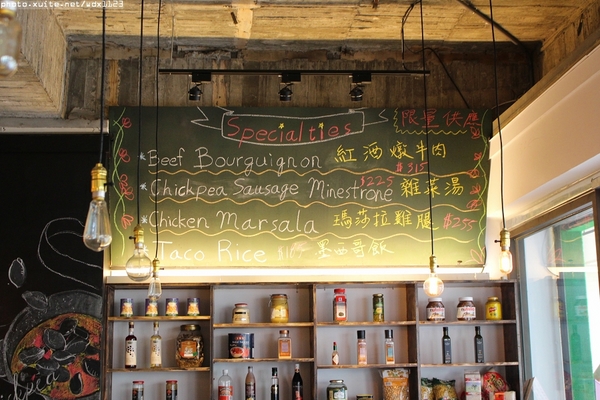 photo.xuite.net/wdx1123
Specialties 限量供應
*Beef Bourguignon 紅酒燉牛肉
$315
*Chickpea Sausage Minestrone $225 雜菜湯
*Chicken Marsala 瑪莎拉雞腿 $255
Taco Rice 墨西哥飯